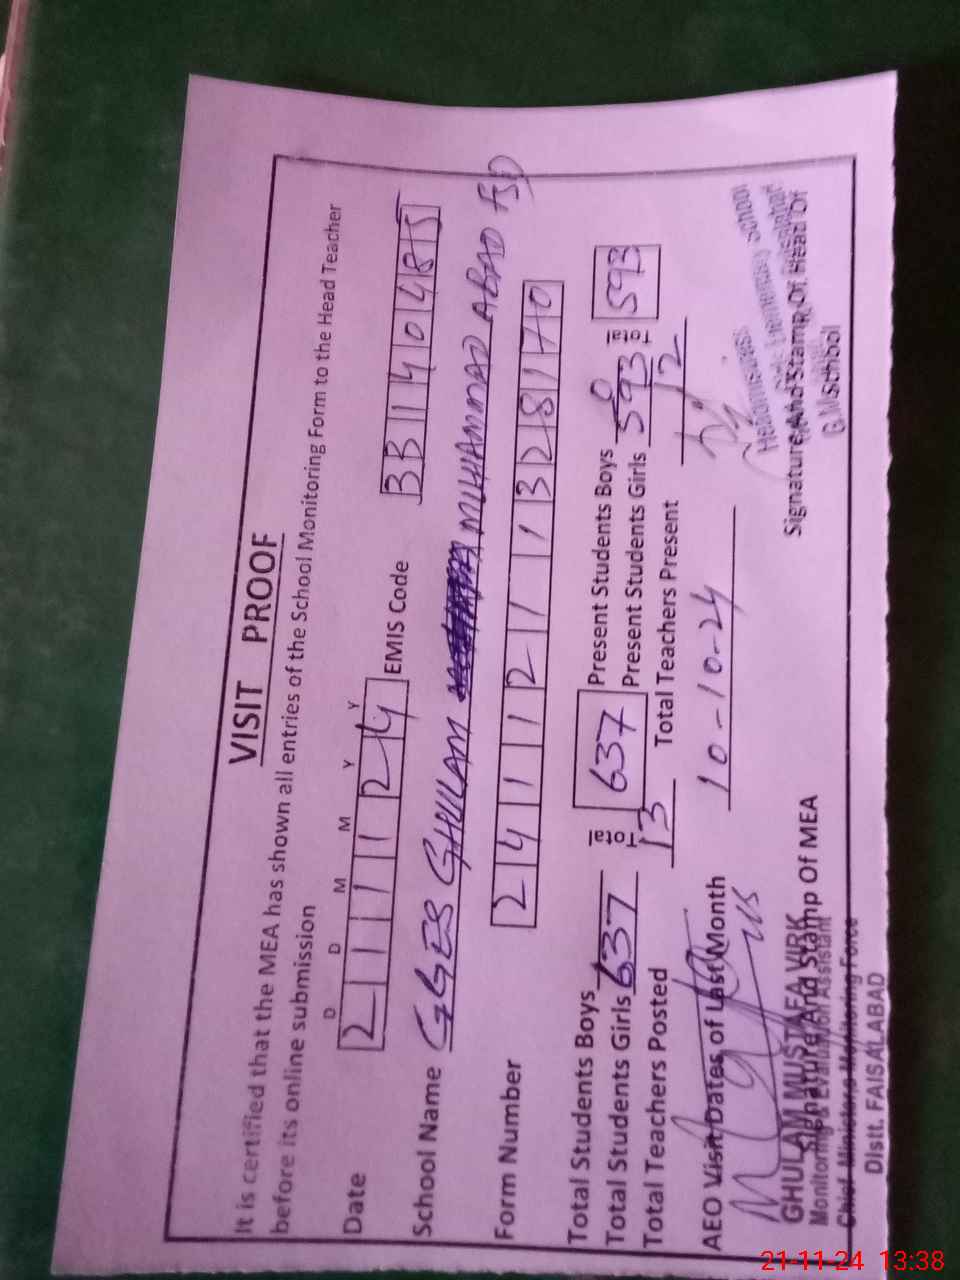 VISIT PROOF
It is certified that the MEA has shown all entries of the School Monitoring Form to the Head Teacher
before its online submission
D D M M Y Y
Date 2 1 1 1 2 4 EMIS Code 3 3 1 4 0 4 8 5
School Name GGES GHULAM MUHAMMAD ABAD FSD
Form Number 2 4 1 1 2 1 1 3 2 8 1 7 0
Total Students Boys Total 637 Present Students Boys 0 Total 593
Total Students Girls 637 Present Students Girls 593
Total Teachers Posted 13 Total Teachers Present 12
AEO Visit Dates of Last Month 10-10-24
GHULAM MUSTAFA VIRK
Signature And Stamp Of MEA
Monitoring & Evaluation Assistant
Chief Minister's Monitoring Force
Distt. FAISALABAD
Headmistress
Elementary School
Signature And Stamp Of Head Of
School
21-11-24 13:38